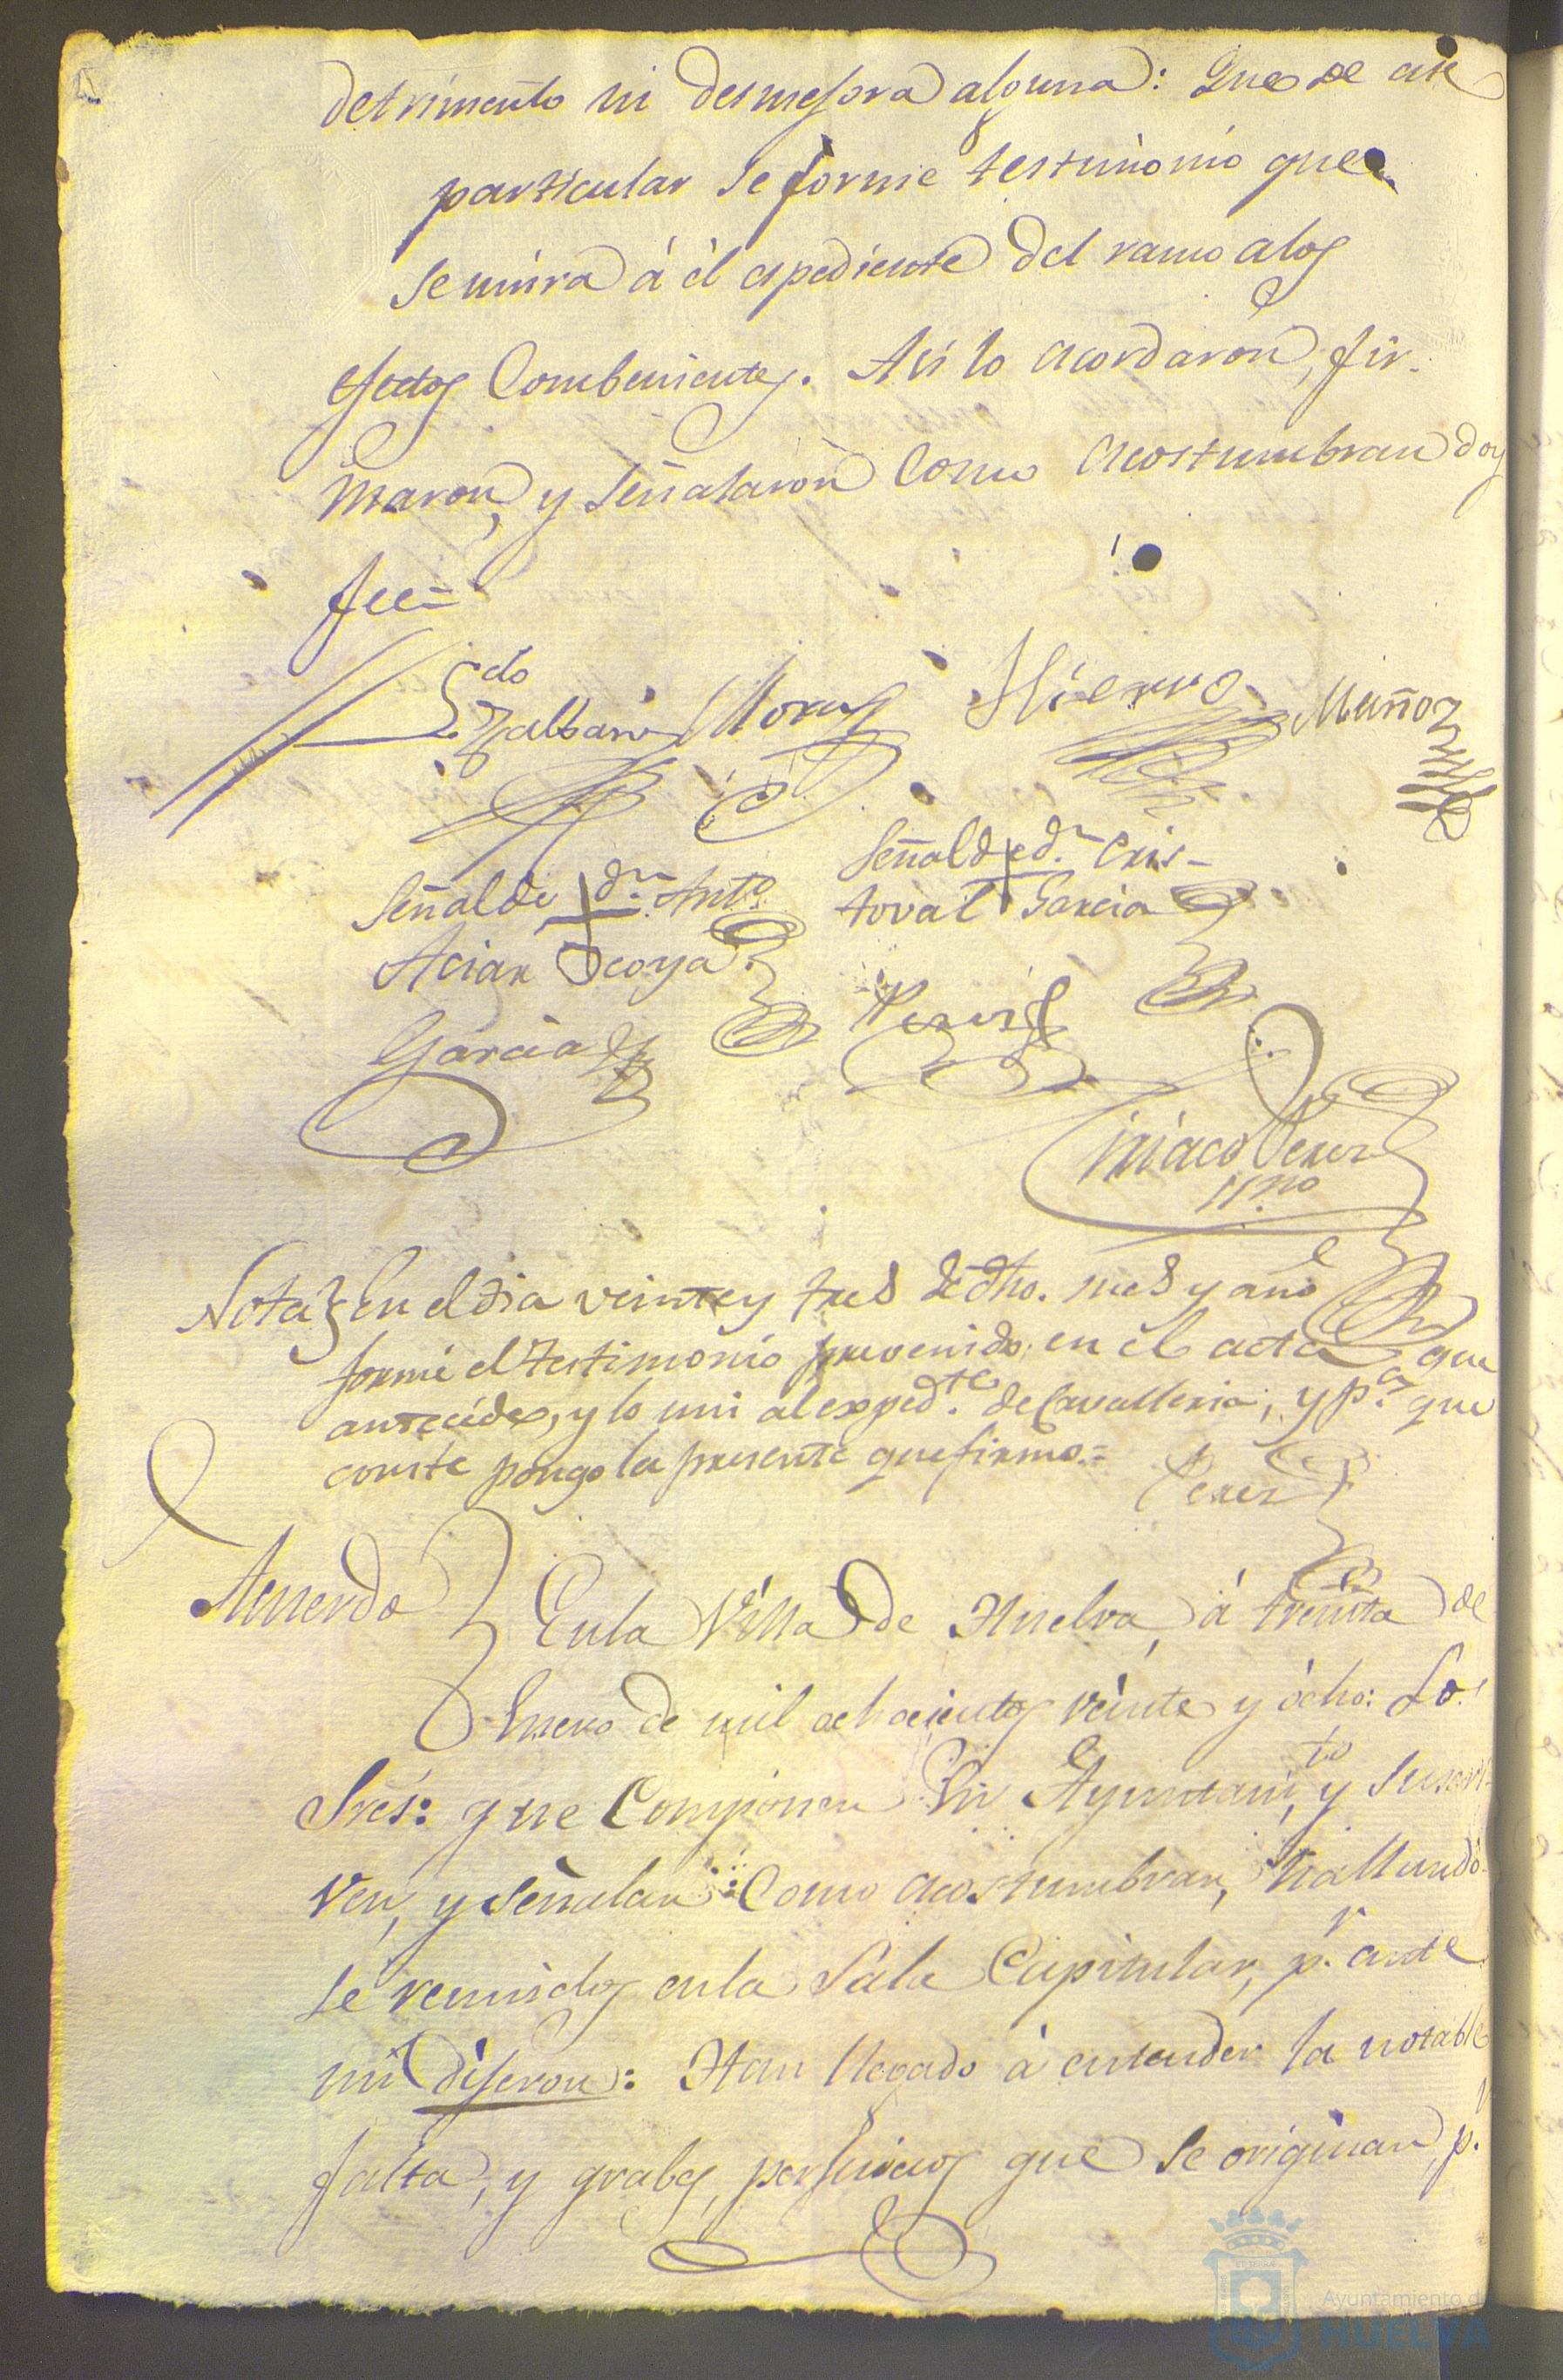 detrimento ni desmejora alguna: Que de este
particular se forme testimonio que
se unira á él expediente del ramo alos
efectos Combenientes. Asi lo acordaron, fir-
maron, y señalaron como acostumbran doy
fee=
Ldo
Zalbari Moray Hierro Muñoz
Señal de + dn. Anto.
Aciar Ocoya
Señal de + dn. Cris-
toval Garcia
Garcia
Perez
Iniaco Perez
ssno
Nota } En el dia veinte y tres de dho. mes y año
formé el testimonio prevenido en el acta que
antecede, y lo uni al expedte. de Cavalleria; y pa. que
conste pongo la presente que firmo.=
Perez
Acuerdo } Enla Villa de Huelva, á treinta de
Enero de mil ochocientos veinte y ócho: Los
Sres: que Componen su Ayuntamto, y suscri-
ven, y señalan como acostumbran, hallando-
se reunidos enla Sala Capitular, pr. ante
mi dijeron: Han llegado á entender la notable
falta, y grabes, perjuicios que se originan, pr.
Ayuntamiento de
HUELVA